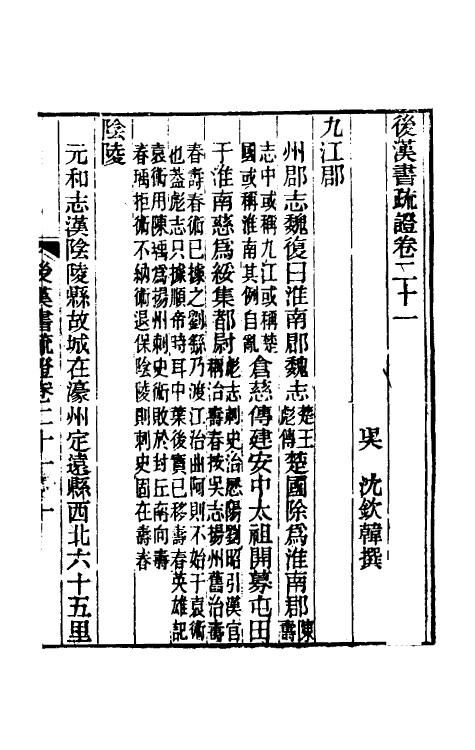 後漢書疏證卷二十一
吳 沈欽韓撰
九江郡
州郡志魏復曰淮南郡魏志楚王彪傳楚國除爲淮南郡陳壽
志中或稱九江或稱楚國或稱淮南其例自亂倉慈傳建安中太祖開募屯田
于淮南慈爲綏集都尉彪志刺史治歷陽劉昭引漢官稱治壽春按吳志揚州舊治壽
春壽春術已據之劉繇乃渡江治曲阿則不始于袁術也葢彪志只據順帝時耳中葉後實已移壽春英雄記
袁術用陳瑀爲揚州刺史術敗於封丘南向壽春瑀拒術不納術退保陰陵則刺史固在壽春
陰陵
元和志漢陰陵縣故城在濠州定遠縣西北六十五里
後漢書疏證卷二十一